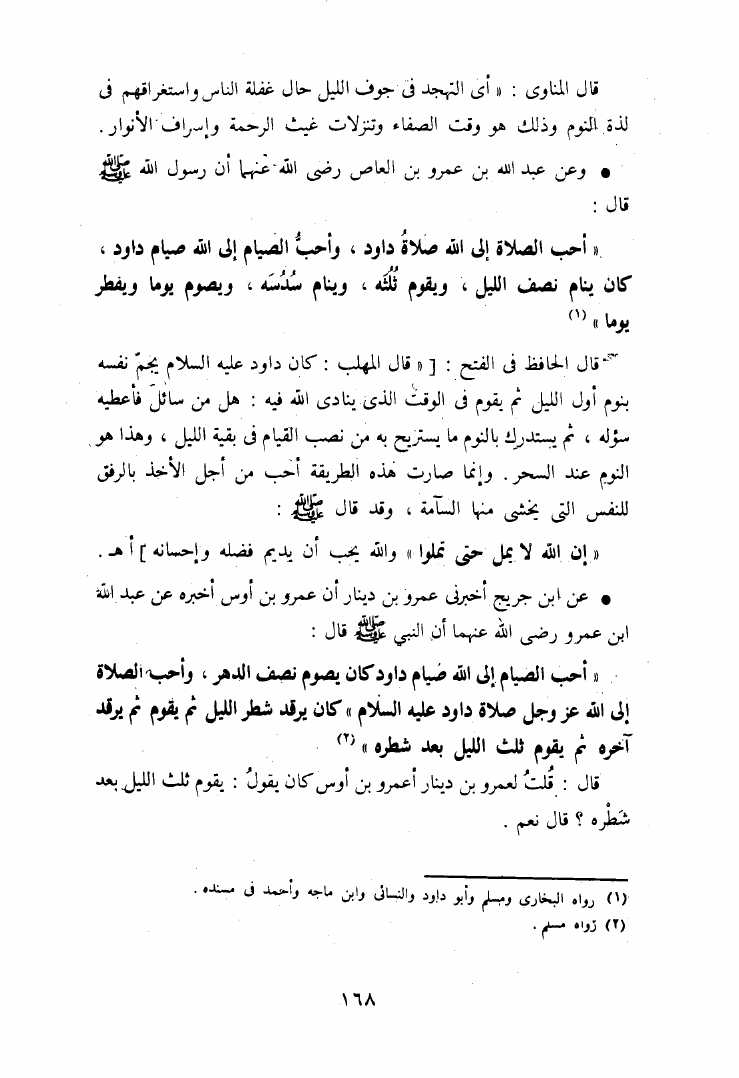 قال المناوى : « أى التهجد فى جوف الليل حال غفلة الناس واستغراقهم فى
لذة النوم وذلك هو وقت الصفاء وتنزلات غيث الرحمة وإسراف الأنوار .
• وعن عبد الله بن عمرو بن العاص رضى الله عنهما أن رسول الله ﷺ
قال :
« أحب الصلاة إلى الله صلاةُ داود ، وأحبُّ الصيام إلى الله صيام داود ،
كان ينام نصف الليل ، ويقوم ثُلُثَه ، وينام سُدُسَه ، ويصوم يوما ويفطر
يوما » (١)
قال الحافظ فى الفتح : [ « قال المهلب : كان داود عليه السلام يجمّ نفسه
بنوم أول الليل ثم يقوم فى الوقت الذى ينادى الله فيه : هل من سائل فأعطيه
سؤله ، ثم يستدرك بالنوم ما يستريح به من نصب القيام فى بقية الليل ، وهذا هو
النوم عند السحر . وإنما صارت هذه الطريقة أحب من أجل الأخذ بالرفق
للنفس التى يخشى منها السآمة ، وقد قال ﷺ :
« إن الله لا يمل حتى تملوا » والله يحب أن يديم فضله وإحسانه ] أ هـ .
• عن ابن جريج أخبرنى عمرو بن دينار أن عمرو بن أوس أخبره عن عبد الله
ابن عمرو رضى الله عنهما أن النبي ﷺ قال :
« أحب الصيام إلى الله صيام داود كان يصوم نصف الدهر ، وأحب الصلاة
إلى الله عز وجل صلاة داود عليه السلام » كان يرقد شطر الليل ثم يقوم ثم يرقد
آخره ثم يقوم ثلث الليل بعد شطره » (٢)
قال : قُلتُ لعمرو بن دينار أعمرو بن أوس كان يقولُ : يقوم ثلث الليل بعد
شَطْره ؟ قال نعم .
(١) رواه البخارى ومسلم وأبو داود والنسائى وابن ماجه وأحمد فى مسنده .
(٢) رواه مسلم .
١٦٨